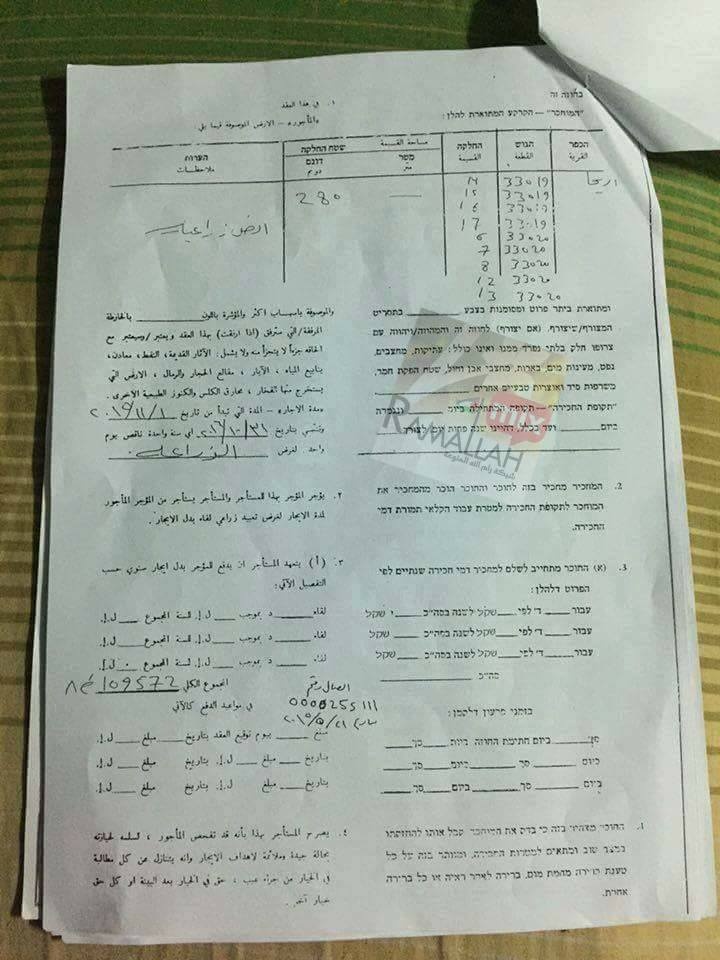 בחוזה זה
"המוחכר" — הקרקע המתוארת להלן:
١. في هذا العقد
والمأجور» — الارض الموصوفة فيما يلي
הכפר
القرية
הגוש
القطعة
החלקה
القسيمة
مساحة القسيمة
שטח החלקה
מטר
متر
דונם
دونم
הערות
ملاحظات
اريحا
33019 14
33019 15
33019 16
33019 17
33020 6
33020 7
33020 8
33020 12
33020 13
280
ומתוארת ביתר פרוט ומסומנות בצבע ____ בתשריט
המצורף/שיצורף. (אם יצורף) לחוזה זה והמהווה/ויהווה עם
צרופו חלק בלתי נפרד ממנו ואינו כולל: עתיקות, מחצבים,
נפט, מעינות מים, בארות, מחצבי אבן וחול, שטח הפקת חמר,
משרפות סיד ואוצרות טבעיים אחרים
"תקופת החכירה" — תקופה המתחילה ביום ____ ונגמרה
ביום ____ ועד בכלל, דהיינו שנה פחות יום לצורך ____
والموصوفة باسهاب اكثر والمؤشرة باللون ____ بالخارطة
المرفقة/التي سترفق (اذا ارفقت) بهذا العقد ويعتبر/وسيعتبر مع
الحاقه جزءاً لا يتجزأ منه ولا يشمل: الآثار القديمة، النفط، معادن،
ينابيع المياه ، الآبار ، مقالع الحجار والرمال ، الارض التي
يستخرج منها الفخار ، محارق الكلس والكنوز الطبيعية الاخرى.
«مدة الاجارة - المدة التي تبدأ من تاريخ ٢٠١٥/١١/١
وتنتهي بتاريخ ٢٠١٦/١٠/٣١ اي سنة واحدة ناقص يوم
واحد لغرض الزراعة
RAMALLAH
شبكة رام الله
2. המחכיר מחכיר בזה לחוכר והחוכר חוכר מהמחכיר את
המוחכר לתקופת החכירה למטרת עבוד חקלאי תמורת דמי
החכירה.
٢. يؤجر المؤجر بهذا للمستأجر والمستأجر يستأجر من المؤجر المأجور
لمدة الايجار لغرض تعبيد زراعي لقاء بدل الايجار.
3. (א) החוכר מתחייב לשלם למחכיר דמי חכירה שנתיים לפי
הפרוט דלהלן:
עבור ____ ד' לפי ____ שקל לשנה בסה"כ ____ שקל
עבור ____ ד' לפי ____ שקל לשנה בסה"כ ____ שקל
עבור ____ ד' לפי ____ שקל לשנה בסה"כ ____ שקל
סה"כ ____
בזמני פרעון דלהמן:
סך ____ ביום חתימת החוזה ביום ____ סך ____
ביום ____ סך ____ ביום ____ סך ____
ביום ____ סך ____ ביום ____ סך ____
٣. (أ) يتعهد المستأجر ان يدفع للمؤجر بدل ايجار سنوي حسب
التفصيل الآتي:
لقاء ____ د بموجب ____ ل.إ. للسنة المجموع ____ ل.إ.
لقاء ____ د بموجب ____ ل.إ. لسنة المجموع ____ ل.إ.
لقاء ____ د بموجب ____ ل.إ. لسنة المجموع ____ ل.إ.
المجموع الكلي 109572
ايصال رقم
0000255111
في مواعيد الدفع كالآتي
مبلغ ____ بيوم توقيع العقد بتاريخ ____ مبلغ ____ ل.إ.
بتاريخ ____ مبلغ ____ ل.إ. بتاريخ ____ مبلغ ____ ل.إ.
بتاريخ ____ مبلغ ____ ل.إ. بتاريخ ____ مبلغ ____ ل.إ.
החוכר מצהיר בזה כי בדק את המוחכר קבל אותו להחזקתו
במצב טוב ומתאים למטרות החכירה, ומוותר בזה על כל
טענת ברירה מחמת מום, ברירה לאחר ראיה או כל ברירה
אחרת.
٤. يصرح المستأجر بهذا بأنه قد تفحص المأجور ، استلمه لحيازته
بحالة جيدة وملائمة لاهداف الايجار وانه يتنازل عن كل مطالبة
في الخيار من جراء عيب ، حق في الخيار بعد البينة او كل حق
خيار آخر.